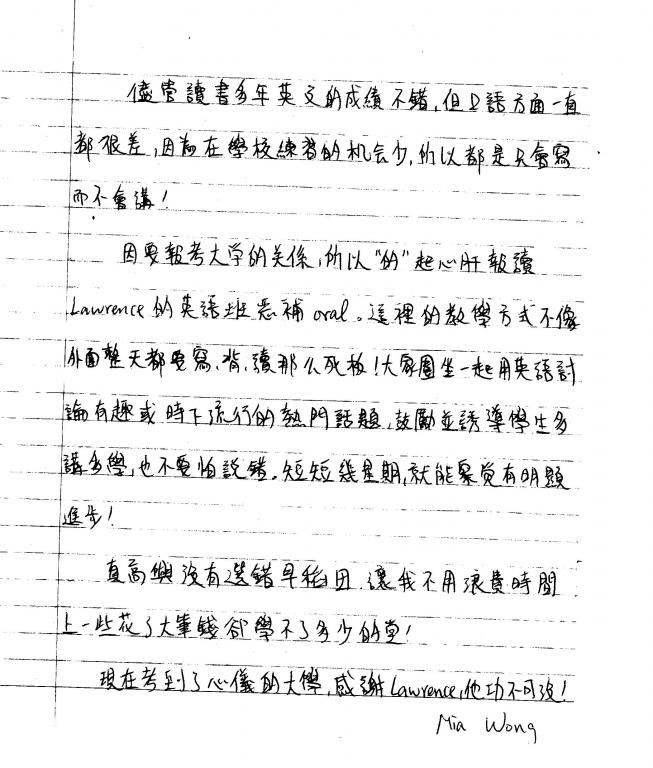 儘管讀書多年英文的成績不錯,但口語方面一直
都很差,因為在學校練習的机会少,所以都是只會寫
而不會講!
因要報考大学的关係,所以"的"起心肝報讀
Lawrence的英語班惡補oral。這裡的教學方式不像
外面整天都要寫、背、讀那么死板!大家圍坐一起用英語討
論有趣或時下流行的熱門話題,鼓勵並誘導學生多
講多學,也不要怕説錯。短短幾星期,就能察覚有明顯
進步!
真高興沒有選錯早稻田,讓我不用浪費時間
上一些花了大筆錢卻學不了多少的堂!
現在考到了心儀的大學,感謝Lawrence,他功不可没!
Mia Wong